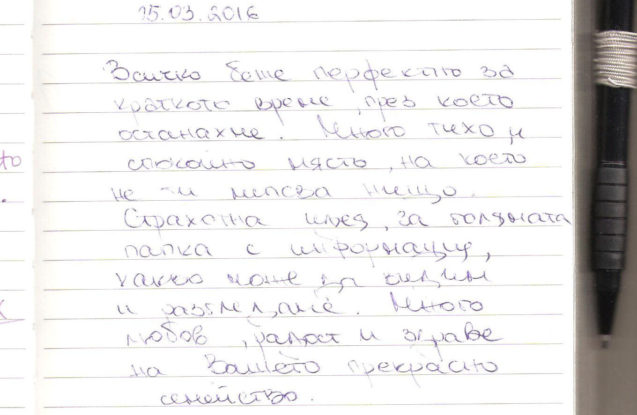 15.03.2016
Всичко беше перфектно за
краткото време, през което
останахме. Много тихо и
спокойно място, на което
не ти липсва нищо.
Страхотна идея, за голямата
папка с информация,
какво може да видим
и разгледаме. Много
любов, радост и здраве
на Вашето прекрасно
семейство.